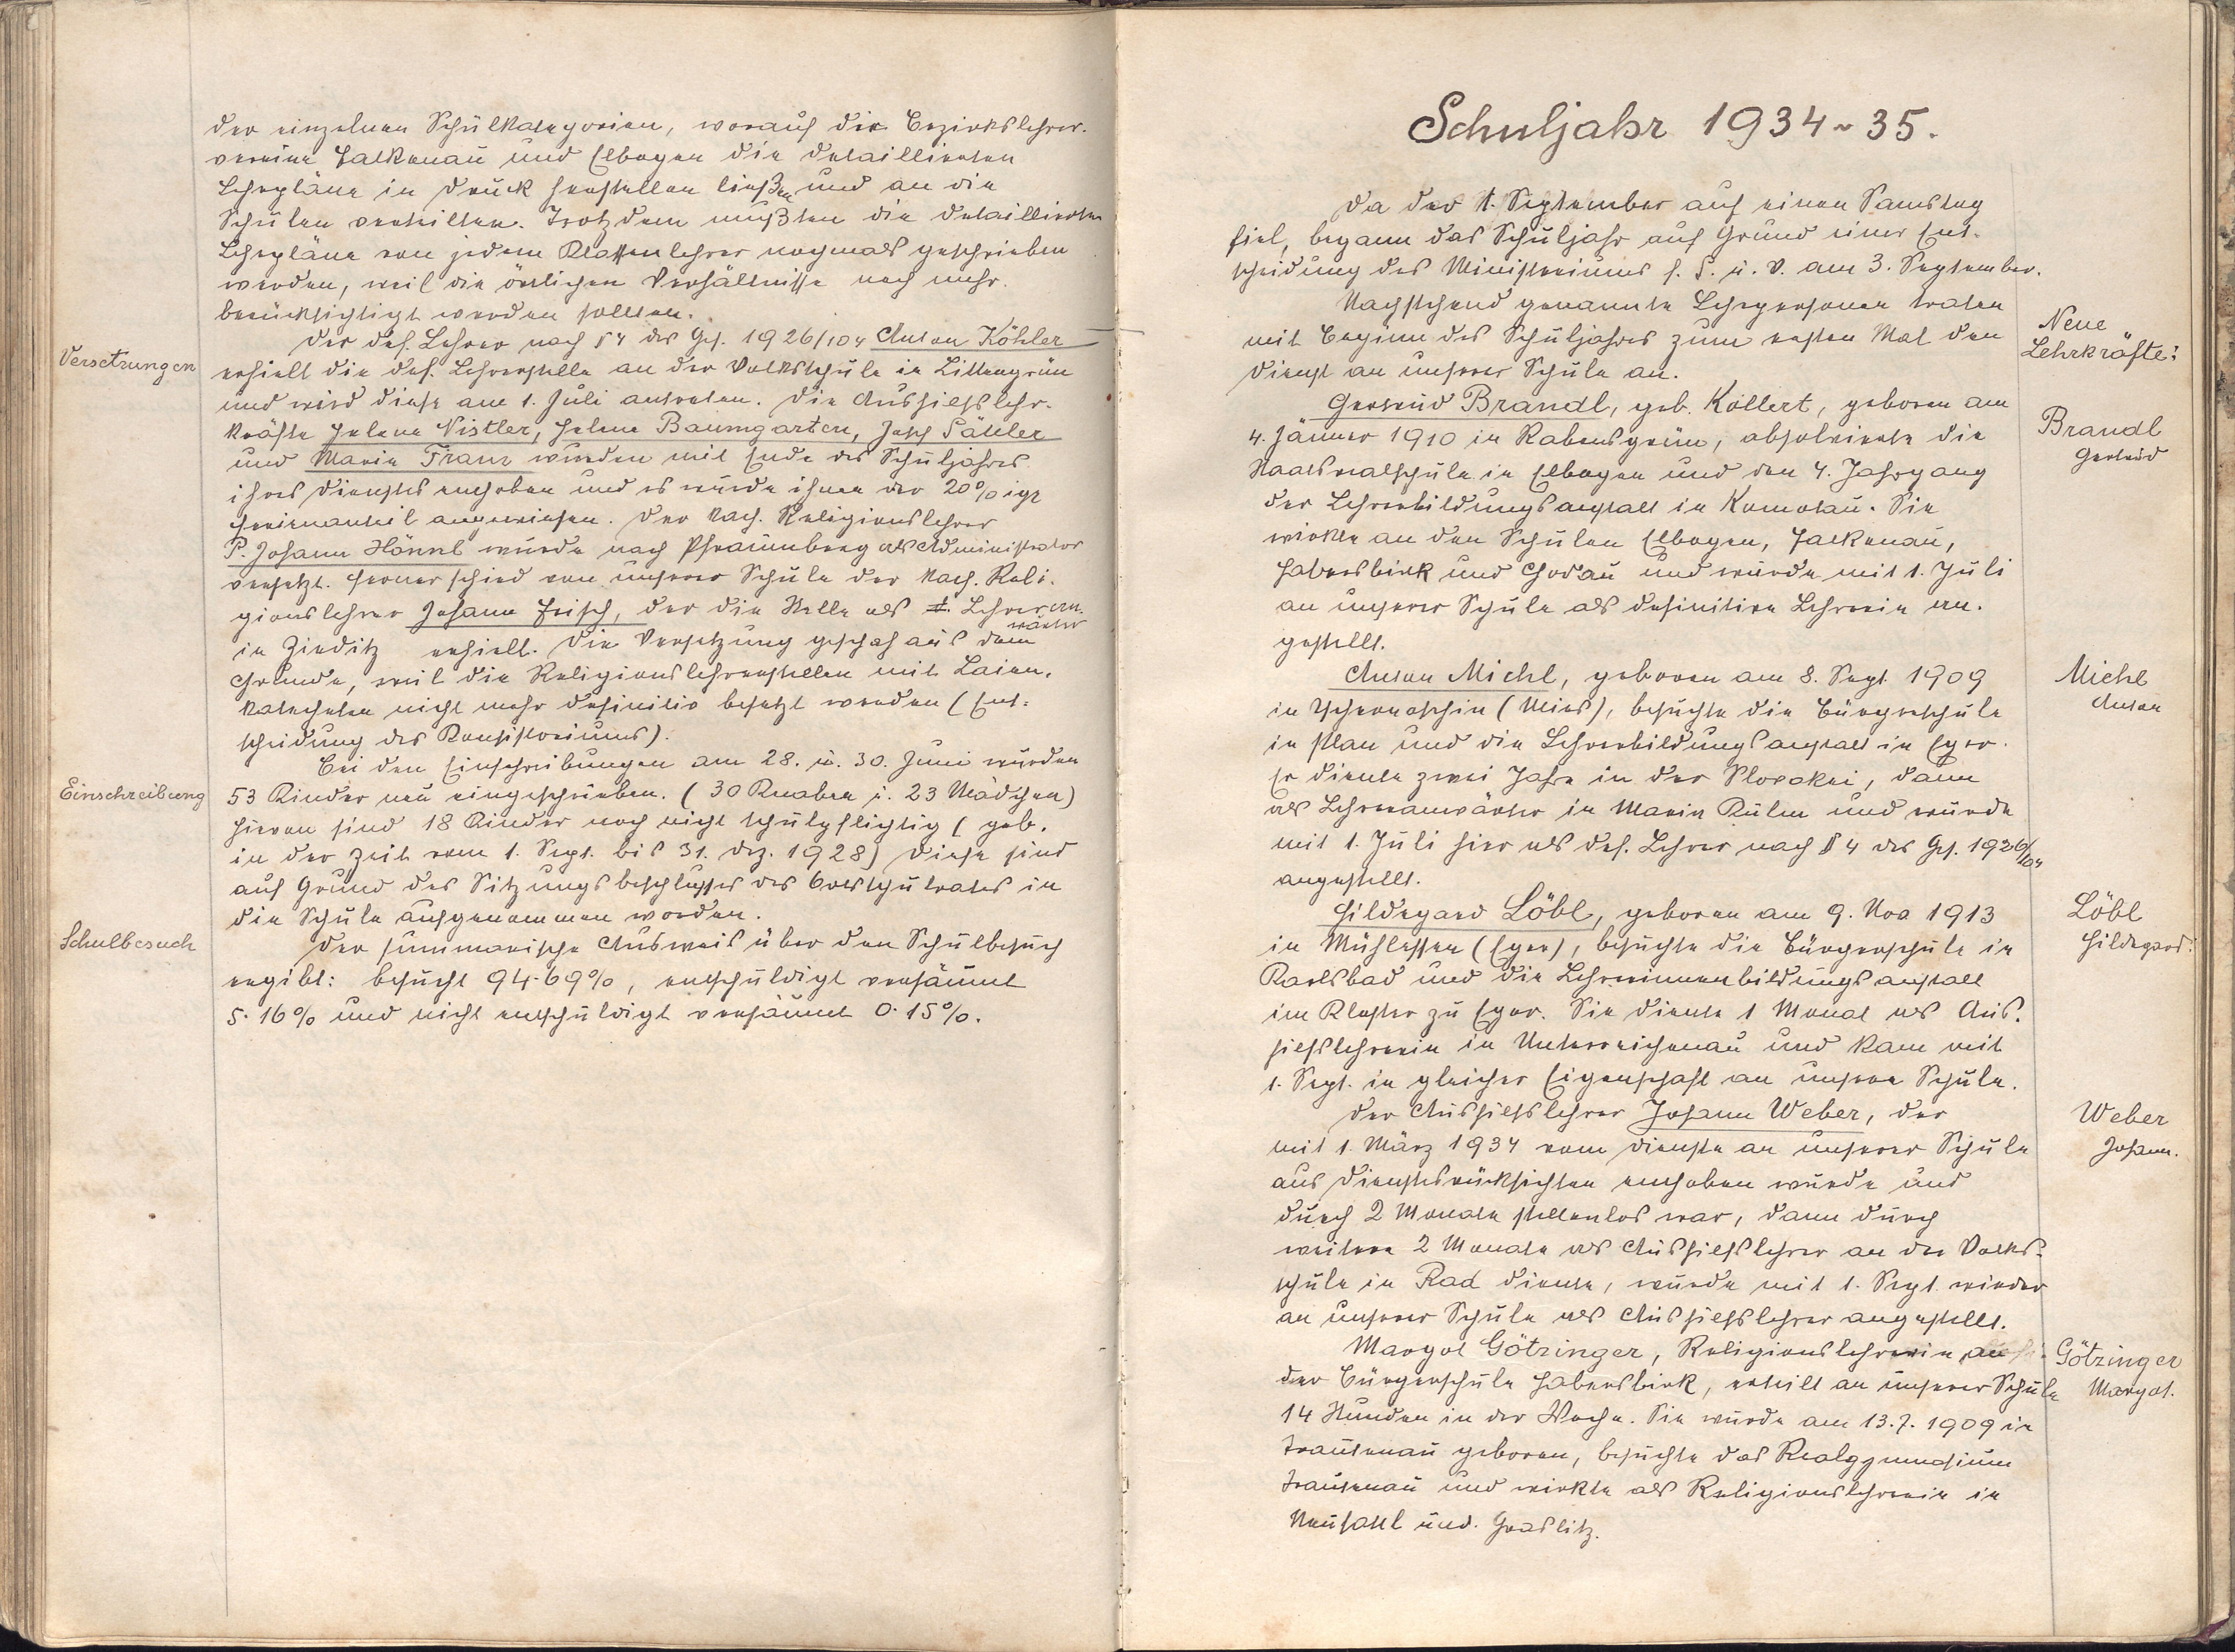 der einzelnen Schulkategorien, worauf die Bezirkslehrer-
vereine Falkenau und Elbogen die detaillierten
Lehrpläne in Druck herstellen ließen und an die
Schulen verteilten. Trotzdem mußten die detaillierten
Lehrpläne von jedem Klassenlehrer nochmals geschrieben
werden, weil die örtlichen Verhältnisse noch mehr
berücksichtigt werden sollten.
Versetzungen
Der def. Lehrer nach § 4 des Ges. 1926/104 Anton Köhler
erhielt die def. Lehrerstelle an der Volksschule in Littengrün
und wird diese am 1. Juli antreten. Die Aushilfslehr-
kräfte Helene Nistler, Helene Baumgarten, Josef Sättler
und Marie Franz wurden mit Ende des Schuljahres
ihres Dienstes enthoben und es wurde ihnen der 20%ige
Ferienanteil angewiesen. Der kath. Religionslehrer
P. Johann Hönnl wurde nach Pfraumberg als Administrator
versetzt. Ferner schied von unserer Schule der kath. Reli-
gionslehrer Johann Frisch, der die Stelle als Lehreran-
wärter
in Zieditz erhielt. Die Versetzung geschah aus dem
Grunde, weil die Religionslehrerstellen mit Laien-
katecheten nicht mehr definitiv besetzt werden (Ent-
scheidung des Konsistoriums).
Einschreibung
Bei den Einschreibungen am 28. u. 30. Juni wurden
53 Kinder neu eingeschrieben. (30 Knaben u. 23 Mädchen)
Hievon sind 18 Kinder noch nicht schulpflichtig (geb.
in der Zeit vom 1. Sept. bis 31. Dez. 1928) Diese sind
auf Grund des Sitzungsbeschlusses des Ortsschulrates in
die Schule aufgenommen worden.
Schulbesuch
Der summarische Ausweis über den Schulbesuch
ergibt: besucht 94·69%, entschuldigt versäumt
5·16% und nicht entschuldigt versäumt 0·15%.
Schuljahr 1934~35.
Da der 1. September auf einen Samstag
fiel, begann das Schuljahr auf Grund einer Ent-
scheidung des Ministeriums f. S. u. V. am 3. September.
Nachstehend genannte Lehrpersonen traten
mit Beginn des Schuljahres zum ersten Mal den
Dienst an unserer Schule an.
Neue
Lehrkräfte:
Gertrud Brandl, geb. Köllert, geboren am
4. Jänner 1910 in Rabensgrün, absolvierte die
Staatsrealschule in Elbogen und den 4. Jahrgang
der Lehrerbildungsanstalt in Komotau. Sie
wirkte an den Schulen Elbogen, Falkenau,
Habersbirk und Chodau und wurde mit 1. Juli
an unserer Schule als definitive Lehrerin an-
gestellt.
Brandl
Gertrud
Anton Michl, geboren am 8. Sept 1909
in Tschernoschin (Mies), besuchte die Bürgerschule
in Plan und die Lehrerbildungsanstalt in Eger.
Er diente zwei Jahre in der Slovakei, dann
als Lehreranwärter in Maria Kulm und wurde
mit 1. Juli hier als def. Lehrer nach § 4 des Ges. 1926/104
angestellt.
Michl
Anton
Hildegard Löbl, geboren am 9. Nov 1913
in Mühlessen (Eger), besuchte die Bürgerschule in
Karlsbad und die Lehrerinnenbildungsanstalt
im Kloster zu Eger. Sie diente 1 Monat als Aus-
hilfslehrerin in Unterreichenau und kam mit
1. Sept. in gleicher Eigenschaft an unsere Schule.
Löbl
Hildegard.
Der Aushilfslehrer Johann Weber, der
mit 1. März 1934 vom Dienste an unserer Schule
aus Dienstesrücksichten enthoben wurde und
durch 2 Monate stellenlos war, dann durch
weitere 2 Monate als Aushilfslehrer an der Volks-
schule in Rad diente, wurde mit 1. Sept. wieder
an unserer Schule als Aushilfslehrer angestellt.
Weber
Johann.
Margot Götzinger, Religionslehrerin an
der Bürgerschule Habersbirk, erteilt an unserer Schule
14 Stunden in der Woche. Sie wurde am 13.7.1909 in
Trautenau geboren, besuchte das Realgymnasium
Trautenau und wirkte als Religionslehrerin in
Neusattl und Graslitz.
Götzinger
Margot.